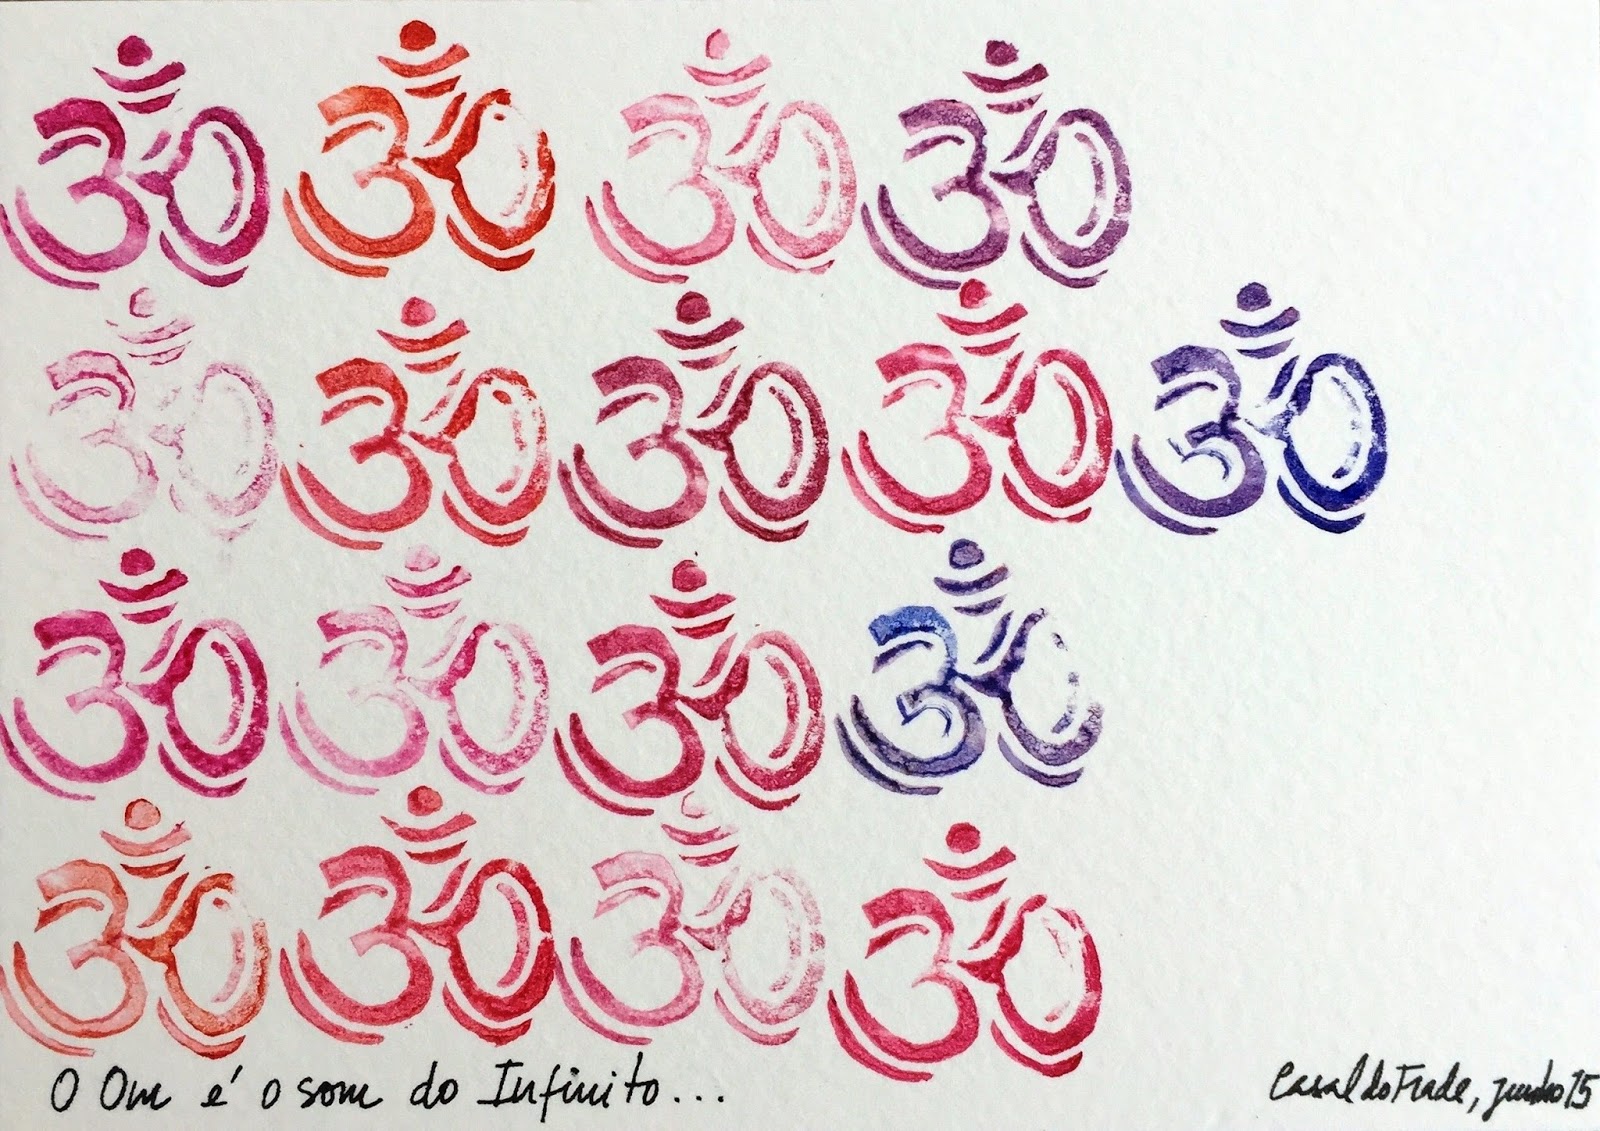 ॐ ॐ ॐ ॐ
ॐ ॐ ॐ ॐ ॐ
ॐ ॐ ॐ ॐ
ॐ ॐ ॐ ॐ
O Om é o som do Infinito...
Casal do Frade, junho 15